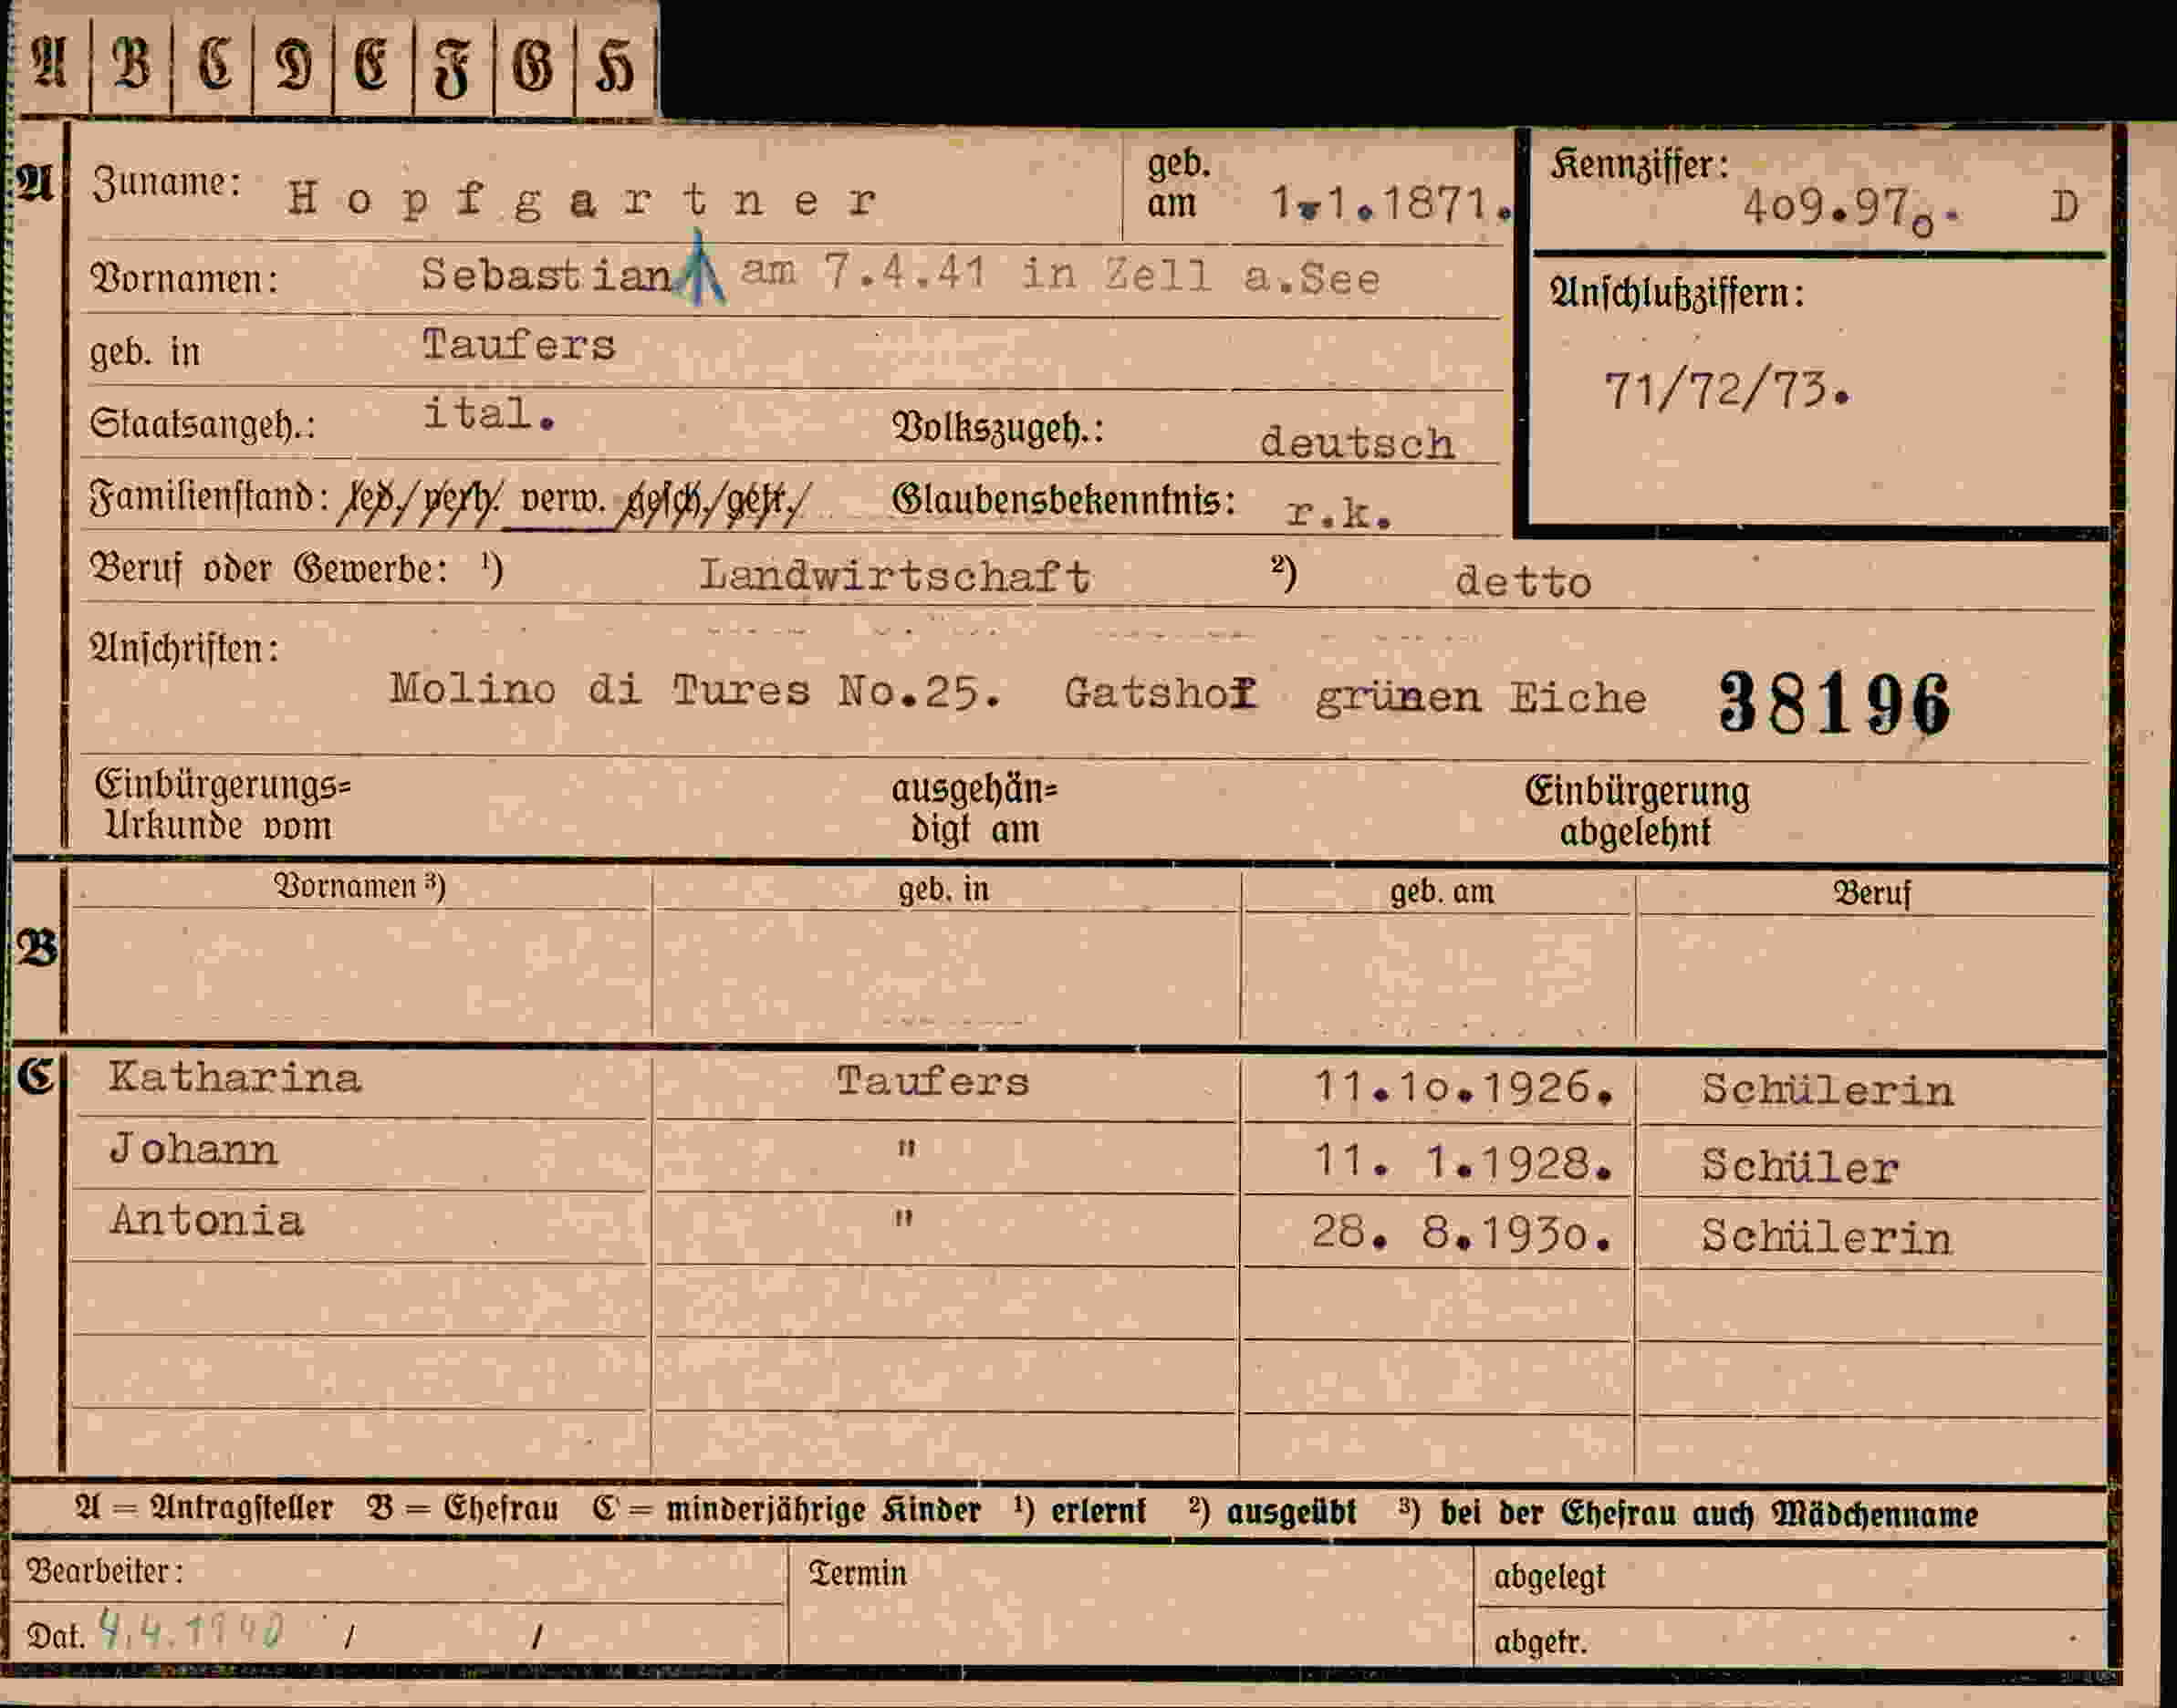 A B C D E F G H
A Zuname: Hopfgartner geb. am 1.1.1871. Kennziffer: 409.970. D
Vornamen: Sebastian am 7.4.41 in Zell a.See Anschlußziffern:
geb. in Taufers 71/72/73.
Staatsangeh.: ital. Volkszugeh.: deutsch
Familienstand: led./verh. verw. gesch./getr./ Glaubensbekenntnis: r.k.
Beruf oder Gewerbe: ¹) Landwirtschaft ²) detto
Anschriften:
Molino di Tures No.25. Gatshof grünen Eiche 38196
Einbürgerungs= ausgehän= Einbürgerung
Urkunde vom digt am abgelehnt
Vornamen ³) geb. in geb. am Beruf
B
C Katharina Taufers 11.10.1926. Schülerin
Johann " 11. 1.1928. Schüler
Antonia " 28. 8.1930. Schülerin
A = Antragsteller B = Ehefrau C = minderjährige Kinder ¹) erlernt ²) ausgeübt ³) bei der Ehefrau auch Mädchenname
Bearbeiter: Termin abgelegt
Dat. 4.4.1940 / / abgetr.